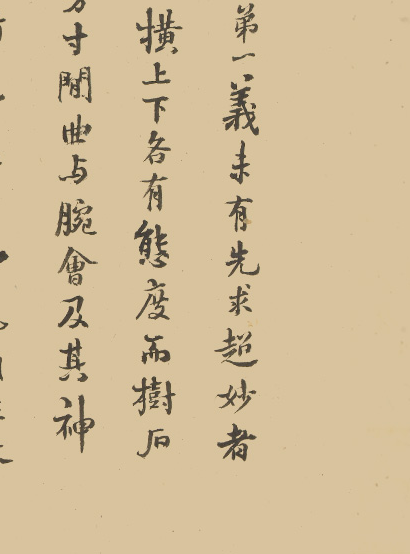 第一義未有先求超妙者
橫上下各有態度而樹石
方寸間曲与腕會及其神